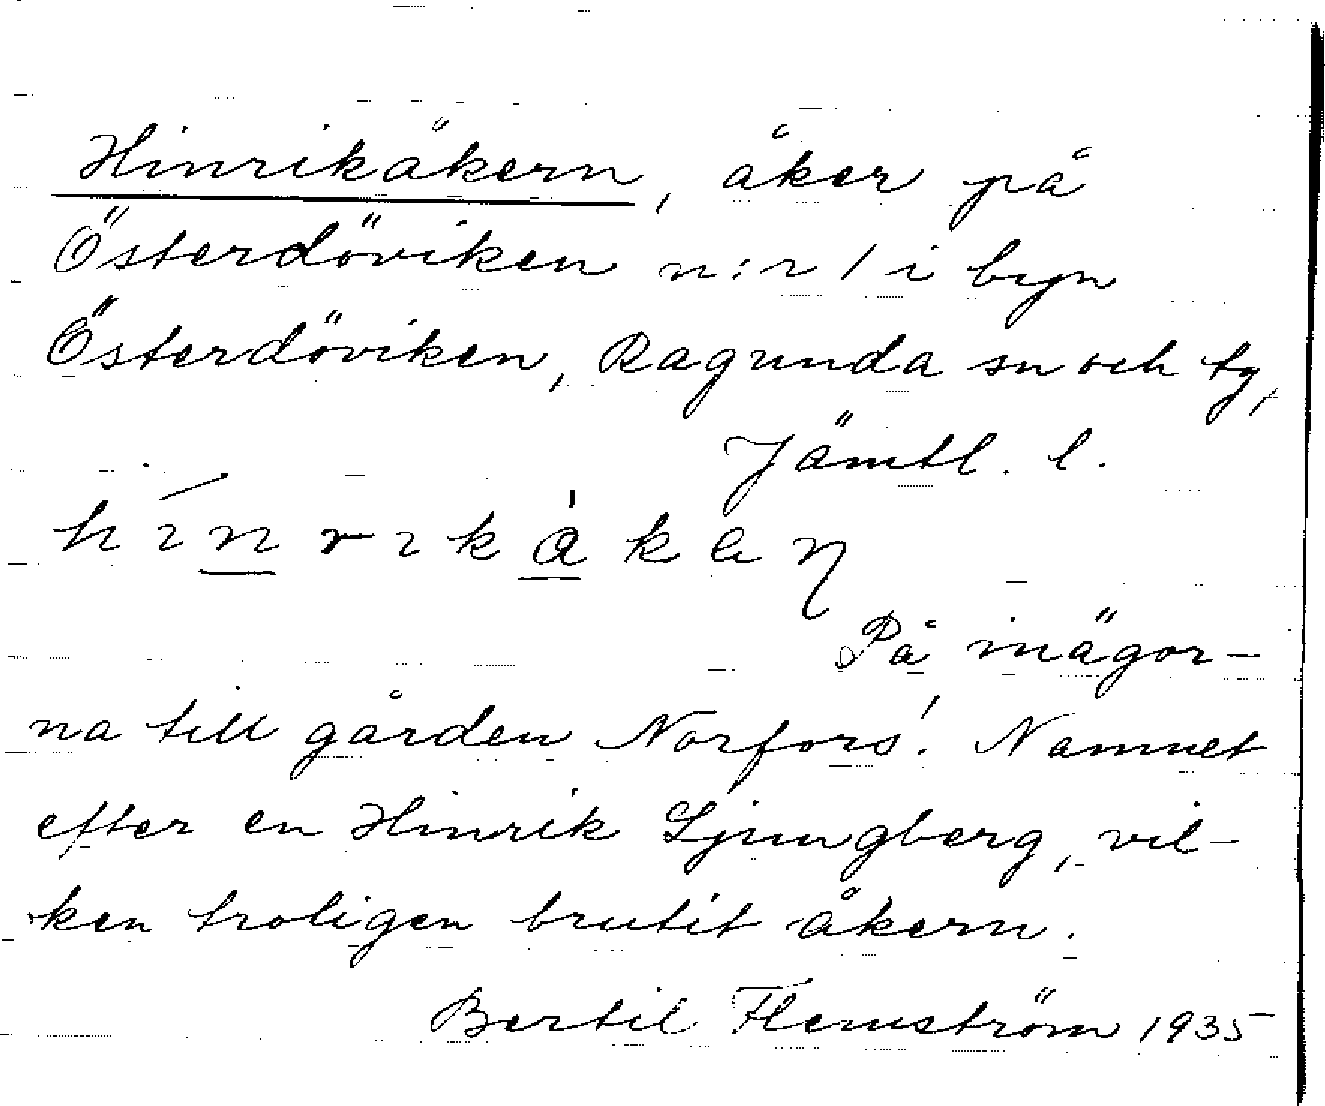 Hinrikåkern, åker på
Österdöviken n:r 1 i byn
Österdöviken, Ragunda sn och tg,
Jämtl. l.
hinrikåkaη
På inägor-
na till gården Norfors! Namnet
efter en Hinrik Ljungberg, vil-
ken troligen brutit åkern.
Bertil Flemström 1935